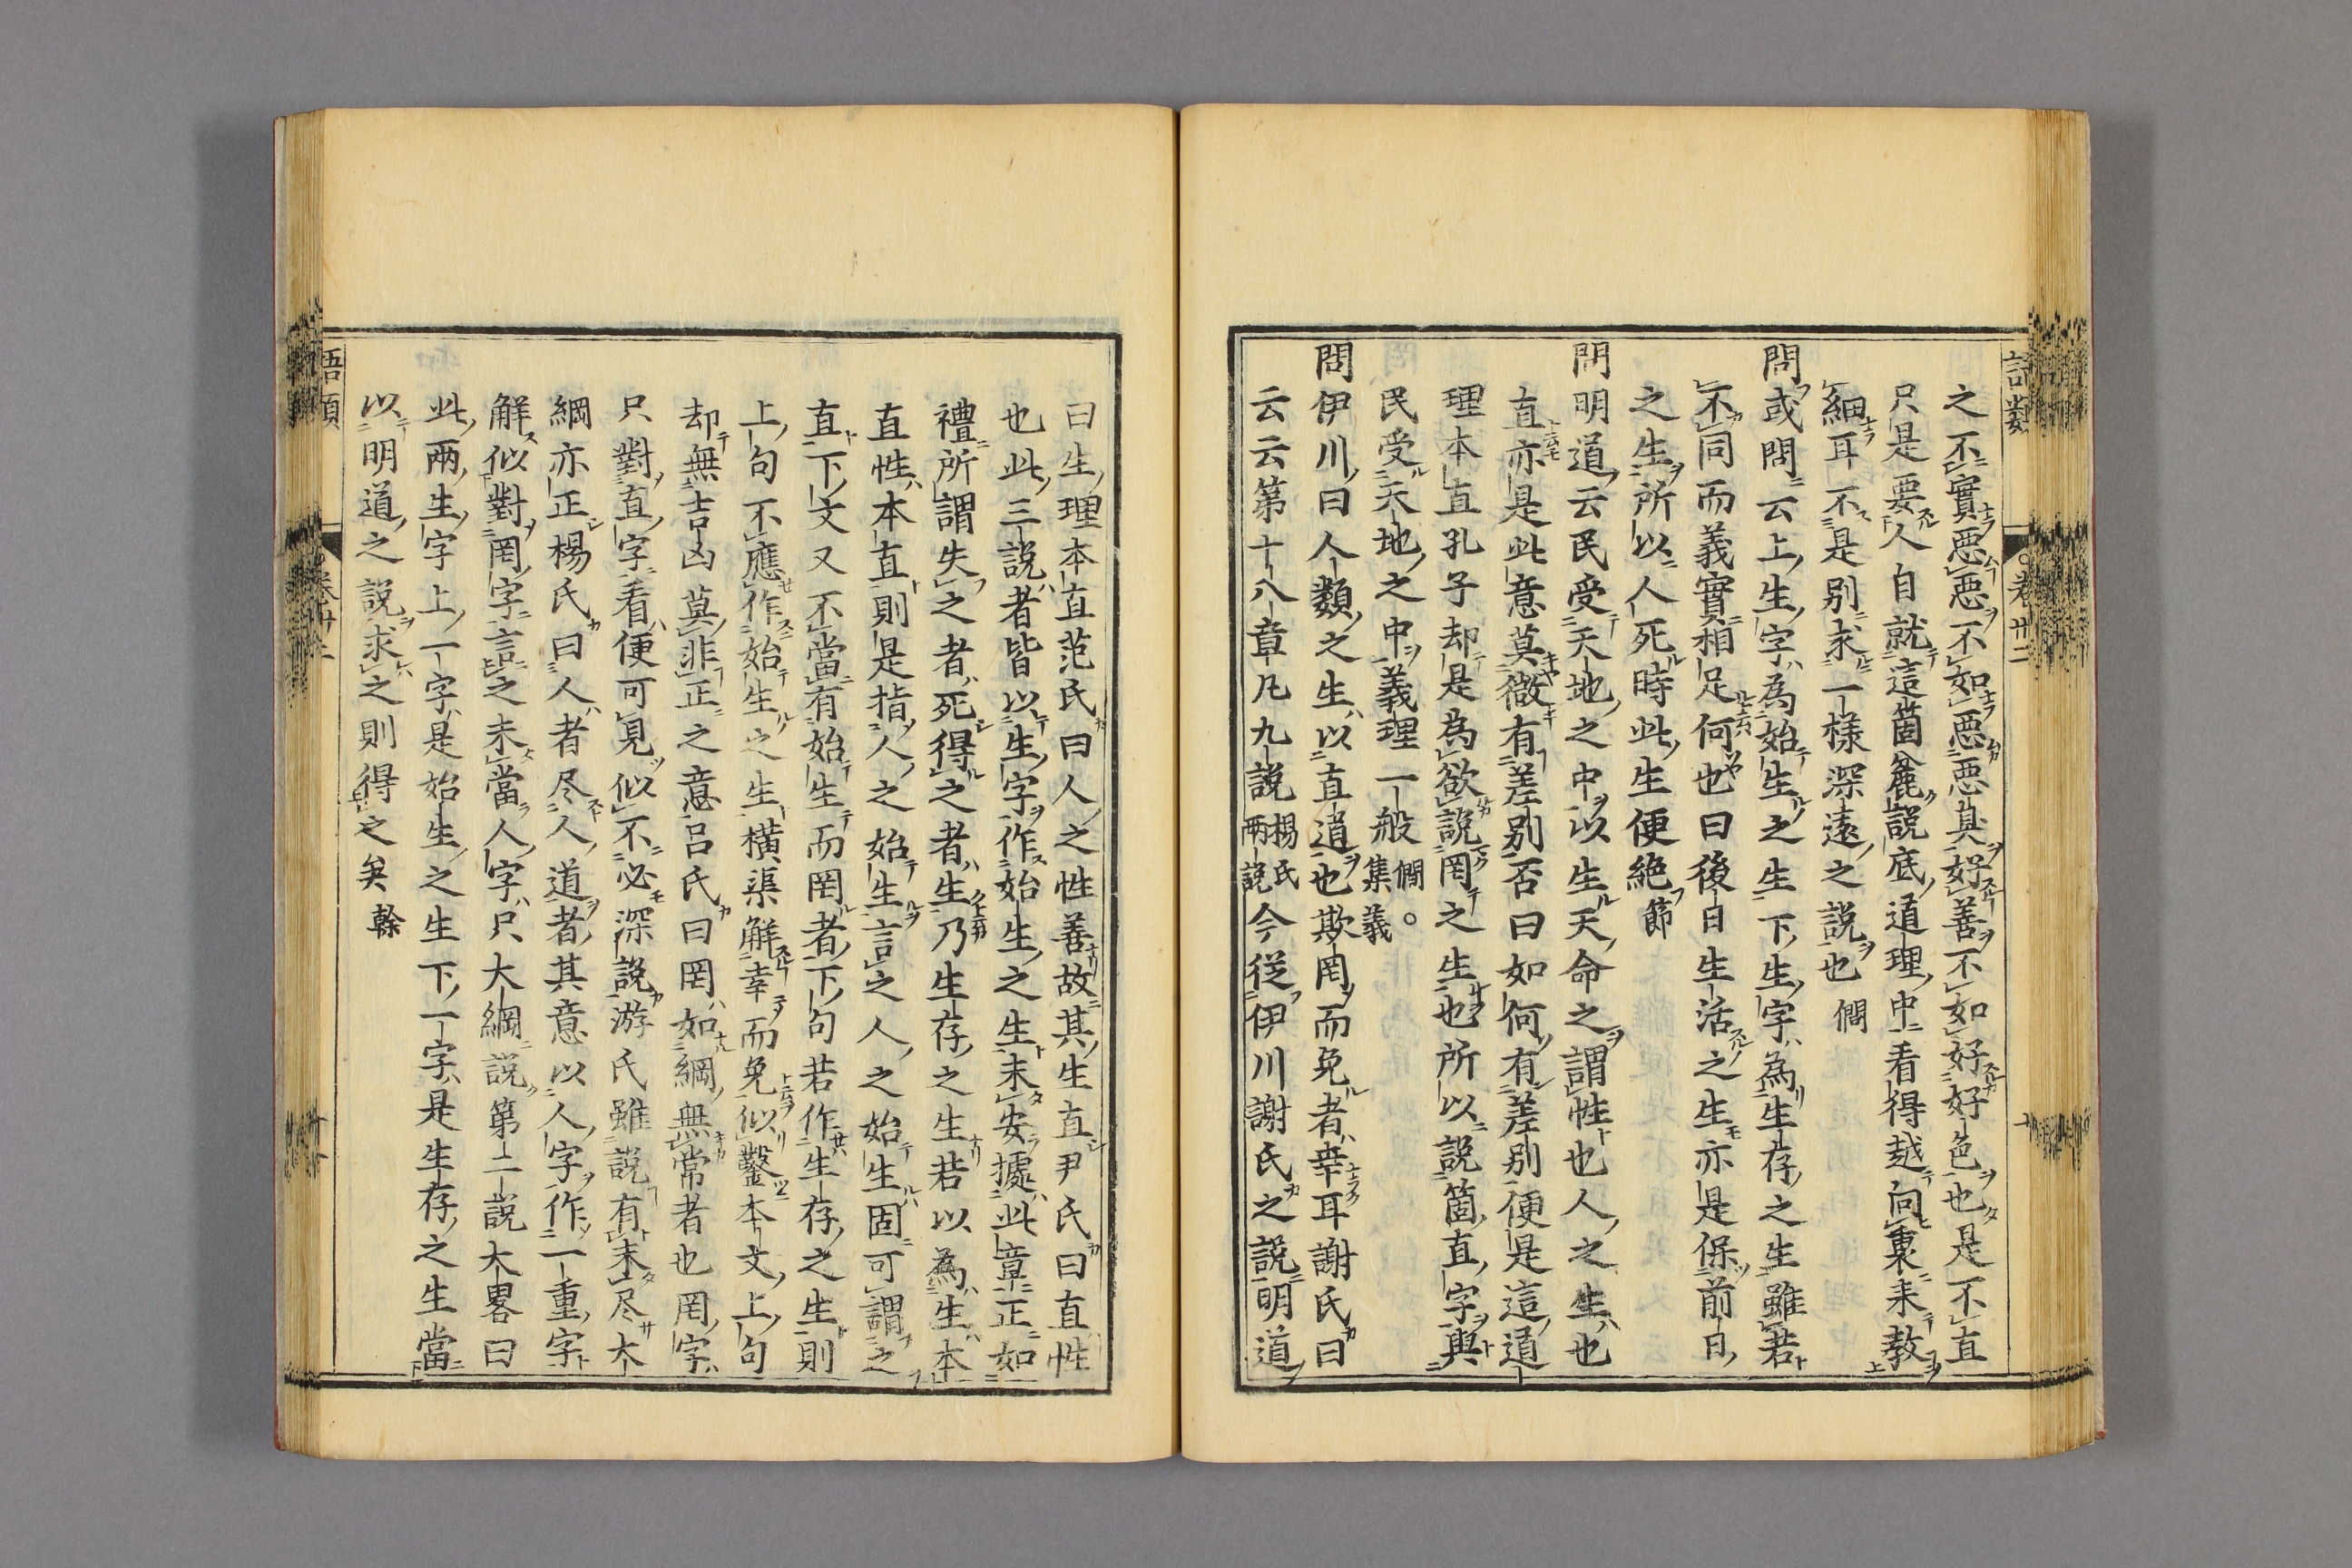 之不實惡惡不如惡惡臭好善不如好好色也是不直
只是要人自就這箇麄說底道理中看得越向裏来教
細耳不是別求一樣深遠之說也 僴
問或問云上生字為始生之生下生字為生存之生雖若
不同而義實相足何也曰後日生活之生亦是保前日
之生所以人死時此生便絕 節
問明道云民受天地之中以生天命之謂性也人之生也
直亦是此意莫微有差別否曰如何有差別便是這道
理本直孔子却是為欲說罔之生也所以說箇直字與
民受天地之中義理一般 僴。集義
問伊川曰人類之生以直道也欺罔而免者幸耳謝氏曰
云云第十八章凡九說 楊氏兩說 今從伊川謝氏之說明道
曰生理本直范氏曰人之性善故其生直尹氏曰直性
也此三說者皆以生字作始生之生未安據此章正如
禮所謂失之者死得之者生乃生存之生若以為生本
直性本直則是指人之始生言之人之始生固可謂之
直下文又不當有始生而罔者下句若作生存之生則
上句不應作始生之生橫渠解幸而免似鑿本文上句
却無吉凶莫非正之意呂氏曰罔如網無常者也罔字
只對直字看便可見似不必深說游氏雖說有未尽大
綱亦正楊氏曰人者尽人道者其意以人字作一重字
解似對罔字言之未當人字只大綱說第二說大畧曰
此兩生字上一字是始生之生下一字是生存之生當
以明道之說求之則得之矣 榦
語類
卷卅二